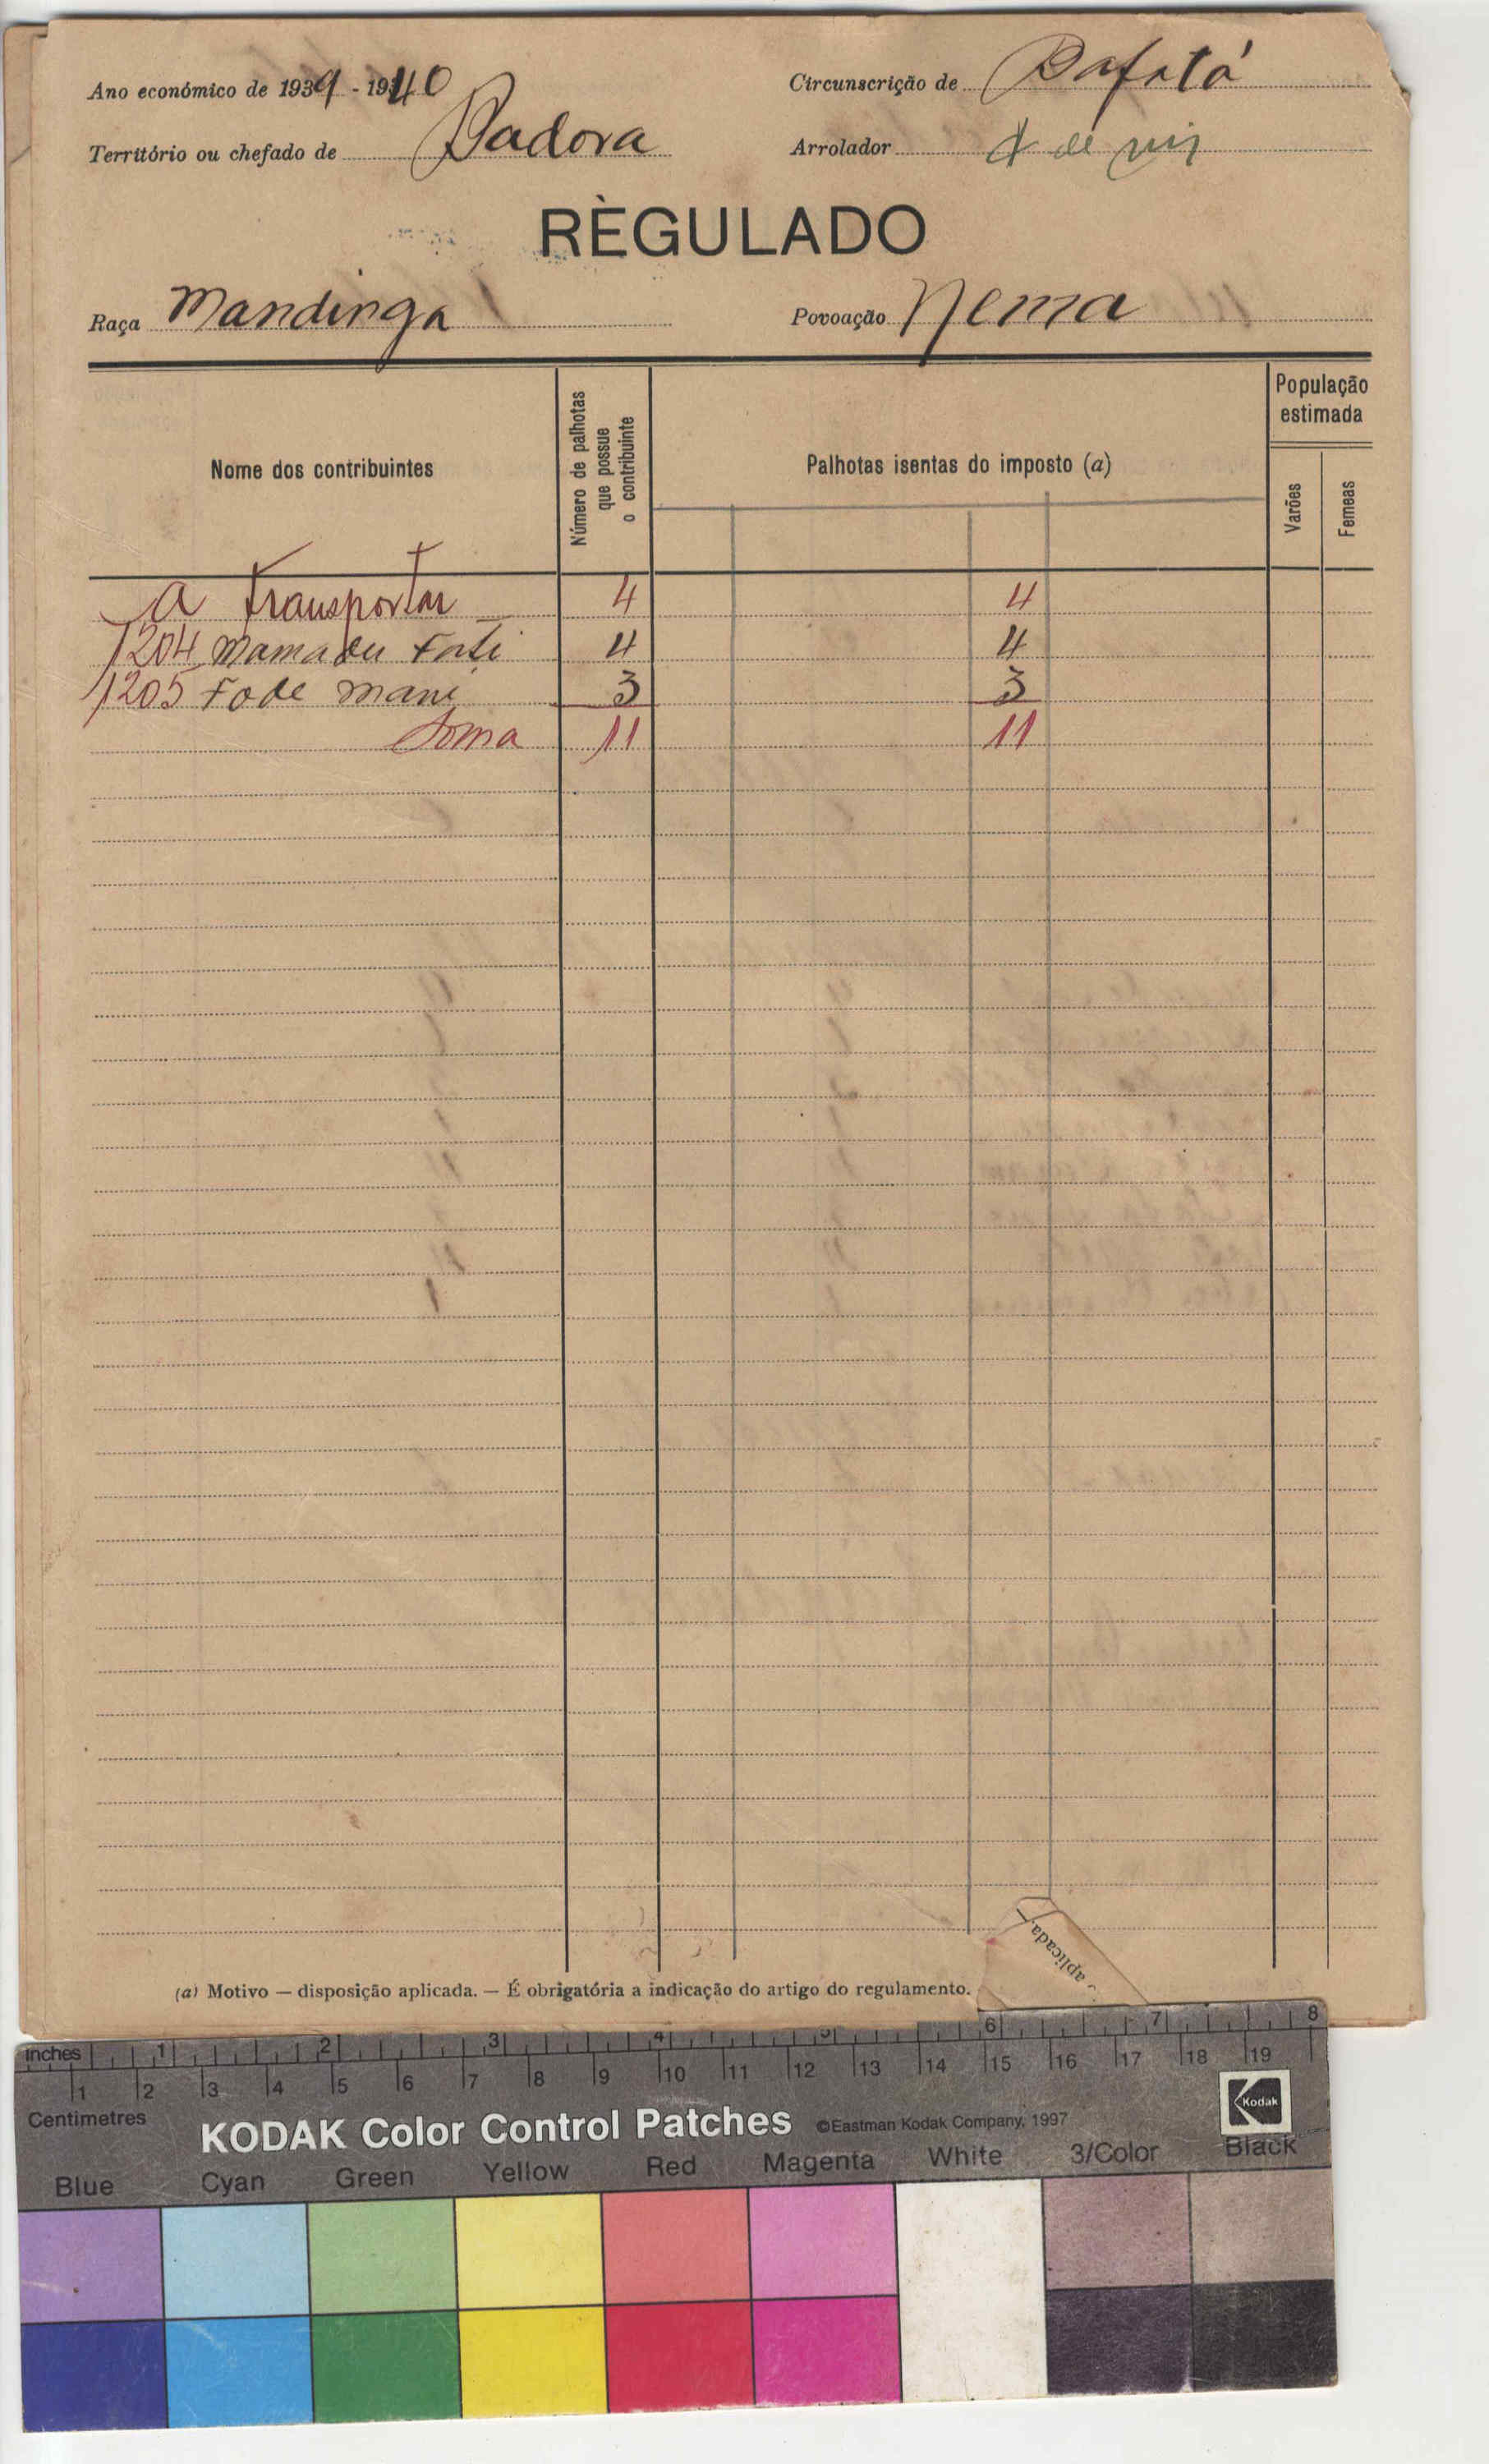 Ano económico de 1939 - 1940
Circunscrição de Bafatá
Território ou chefado de Badora
Arrolador
RÈGULADO
Raça Mandinga
Povoação Nema
Nome dos contribuintes
Número de palhotas que possue o contribuinte
Palhotas isentas do imposto (a)
População estimada
Varões
Femeas
a transportar 4 4
1204 Mamadu Fati 4 4
1205 Fode Mané 3 3
Soma 11 11
aplicada.—
(a) Motivo — disposição aplicada. — É obrigatória a indicação do artigo do regulamento.
inches 1 2 3 4 5 6 7 8
1 2 3 4 5 6 7 8 9 10 11 12 13 14 15 16 17 18 19
Centimetres
KODAK Color Control Patches ©Eastman Kodak Company, 1997
Kodak
Blue Cyan Green Yellow Red Magenta White 3/Color Black